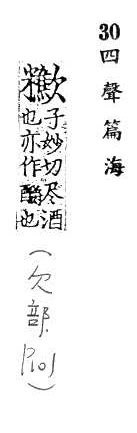 30 四聲篇海
子妙切尽酒
也亦作釂也
(欠部. P101)